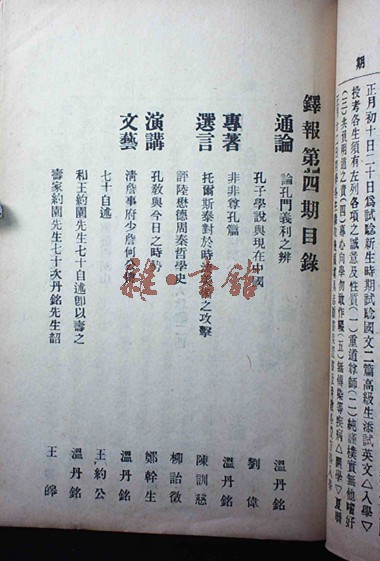 期
正月初十日二十日為試騐新生時期試騐國文二篇高級生添試英文△入學▽
投考各生須有左列各項之誠意及性質（一）重道尊師（二）純謹樸實無他嗜好
（三）夾視明道之責（四）專心向學勿敢作輟（五）無傳染等疾病△開學▽夏曆
鐸報第廿四期目錄
通論
論孔門義利之辨 溫丹銘
孔子學說與現在中國 劉偉
專著
非非尊孔篇 溫丹銘
選言
托爾斯泰對於時 之攻擊 陳訓慈
評陸懋德周秦哲學史 柳詒徵
演講
孔教與今日之時 鄭幹生
文藝
清詹事府少詹何公 溫丹銘
七十自述 王約公
和王約園先生七十自述即以壽之 溫丹銘
壽家約園先生七十次丹銘先生韶 王
雅·書館